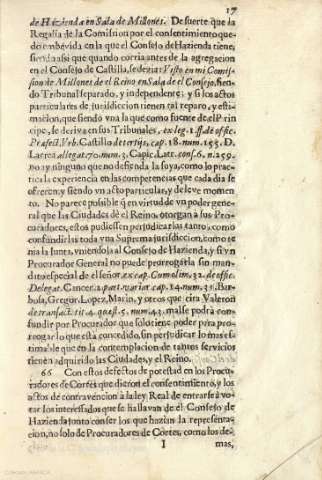 17
de Hazienda en Sala de Millones. De suerte que la
Regalia de la Comission por el consentimiento que-
dò embevida en la que el Consejo de Hazienda tiene,
siendo assi que quando corria antes de la agregacion
en el Consejo de Castilla, se dezia: Visto en mi Comis-
sion de Millones de el Reino en Sala de el Consejo, sien-
do Tribunal separado, y independente; y si los actos
particulares de jurisdiccion tienen tal reparo, y esti-
macion, que siendo vna la que como fuente de el Prin
cipe, se deriva en sus Tribunales, ex leg. 1. ff. de offic.
Præfect. Vrb. Castillo de tertijs, cap. 18. num. 195. D.
Larrea allegat. 70. num. 3. Capic. Latr. cons. 6. n. 259.
no ay ninguno que no defienda la suya, como lo prac-
tica la experiencia en las competencias que cada dia se
ofrecen; y siendo vn acto particular, y de leve momen
to. No parece posible q̃ en virtud de vn poder gene-
ral que las Ciudades de el Reino otorgan à sus Pro-
curadores, estos pudiessen perjudicarlas tanto, como
confundirlas toda vna Suprema jurisdiccion, como te
nia la Junta, vniendola al Consejo de Hazienda, y si vn
Procurador General no puede prorrogarla sin man-
dito especial de el señor, ex cap. Cum olim, 32. de offic.
Delegat. Cancer. 2. part. variar. cap. 14. num. 31. Bar-
bosa, Gregor. Lopez, Marin, y otros que cita Valeron
de transact. tit. 4. quæst. 5. num. 43. mal se podrà con-
fundir por Procurador que solo tiene poder para pro-
rrogar lo que està concedido, sin perjudicar lo mas es
timable que en la contemplacion de tantos servicios
tienen adquirido las Ciudades, y el Reino.
66 Con estos defectos de potestad en los Procu-
radores de Cortes que dieron el consentimiento, y los
actos de contravencion à la ley Real de entrarse à vo-
tar los interessados que se hallavan de el Consejo de
Hazienda junto con ser los que hazian la representa-
cion, no solo de Procuradores de Cortes, como los de-
I mas,